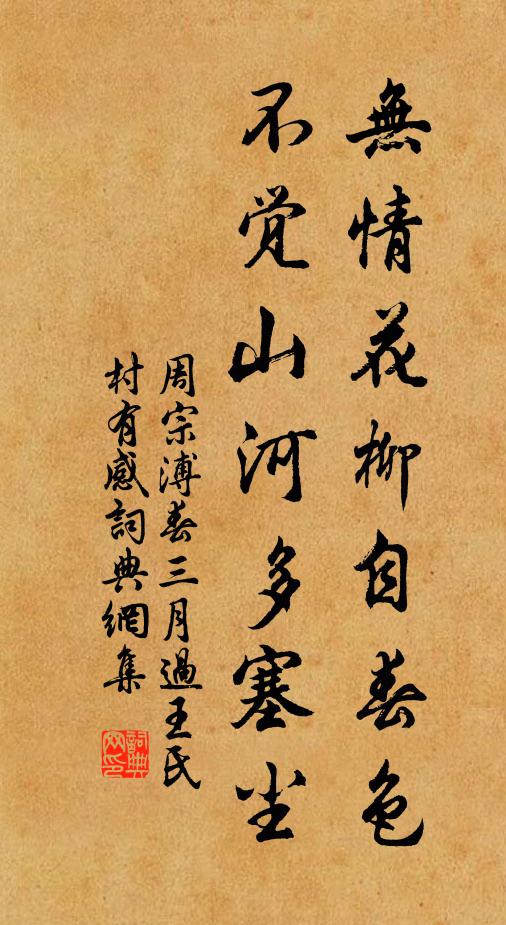 無情花柳自春色
不觉山河多塞尘
周宗溥春三月過王氏
村有感詞典網集
詞典網印